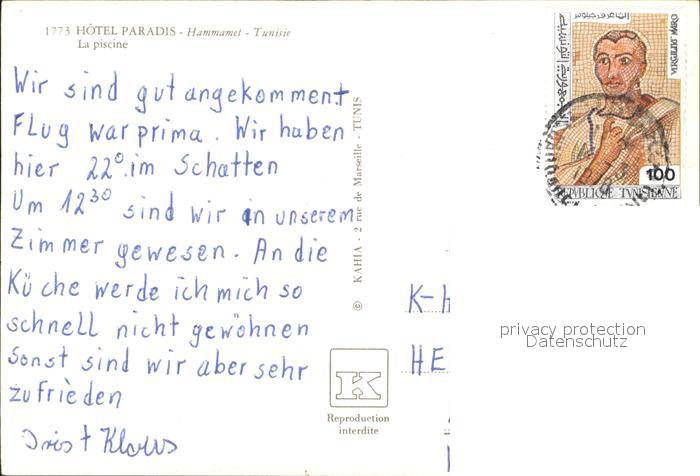 1773 HÔTEL PARADIS - Hammamet - Tunisie
La piscine
Wir sind gut angekomment
Flug war prima. Wir haben
hier 22° im Schatten
Um 12³⁰ sind wir in unserem
Zimmer gewesen. An die
Küche werde ich mich so
schnell nicht gewöhnen
Sonst sind wir aber sehr
zufrieden
Iris + Klaus
© KAHIA - 2 rue de Marseille - TUNIS
K
Reproduction
interdite
VERGILIUS MARO
100
REPVBLIQUE TVNISIENNE
K-H
HE
privacy protection
Datenschutz